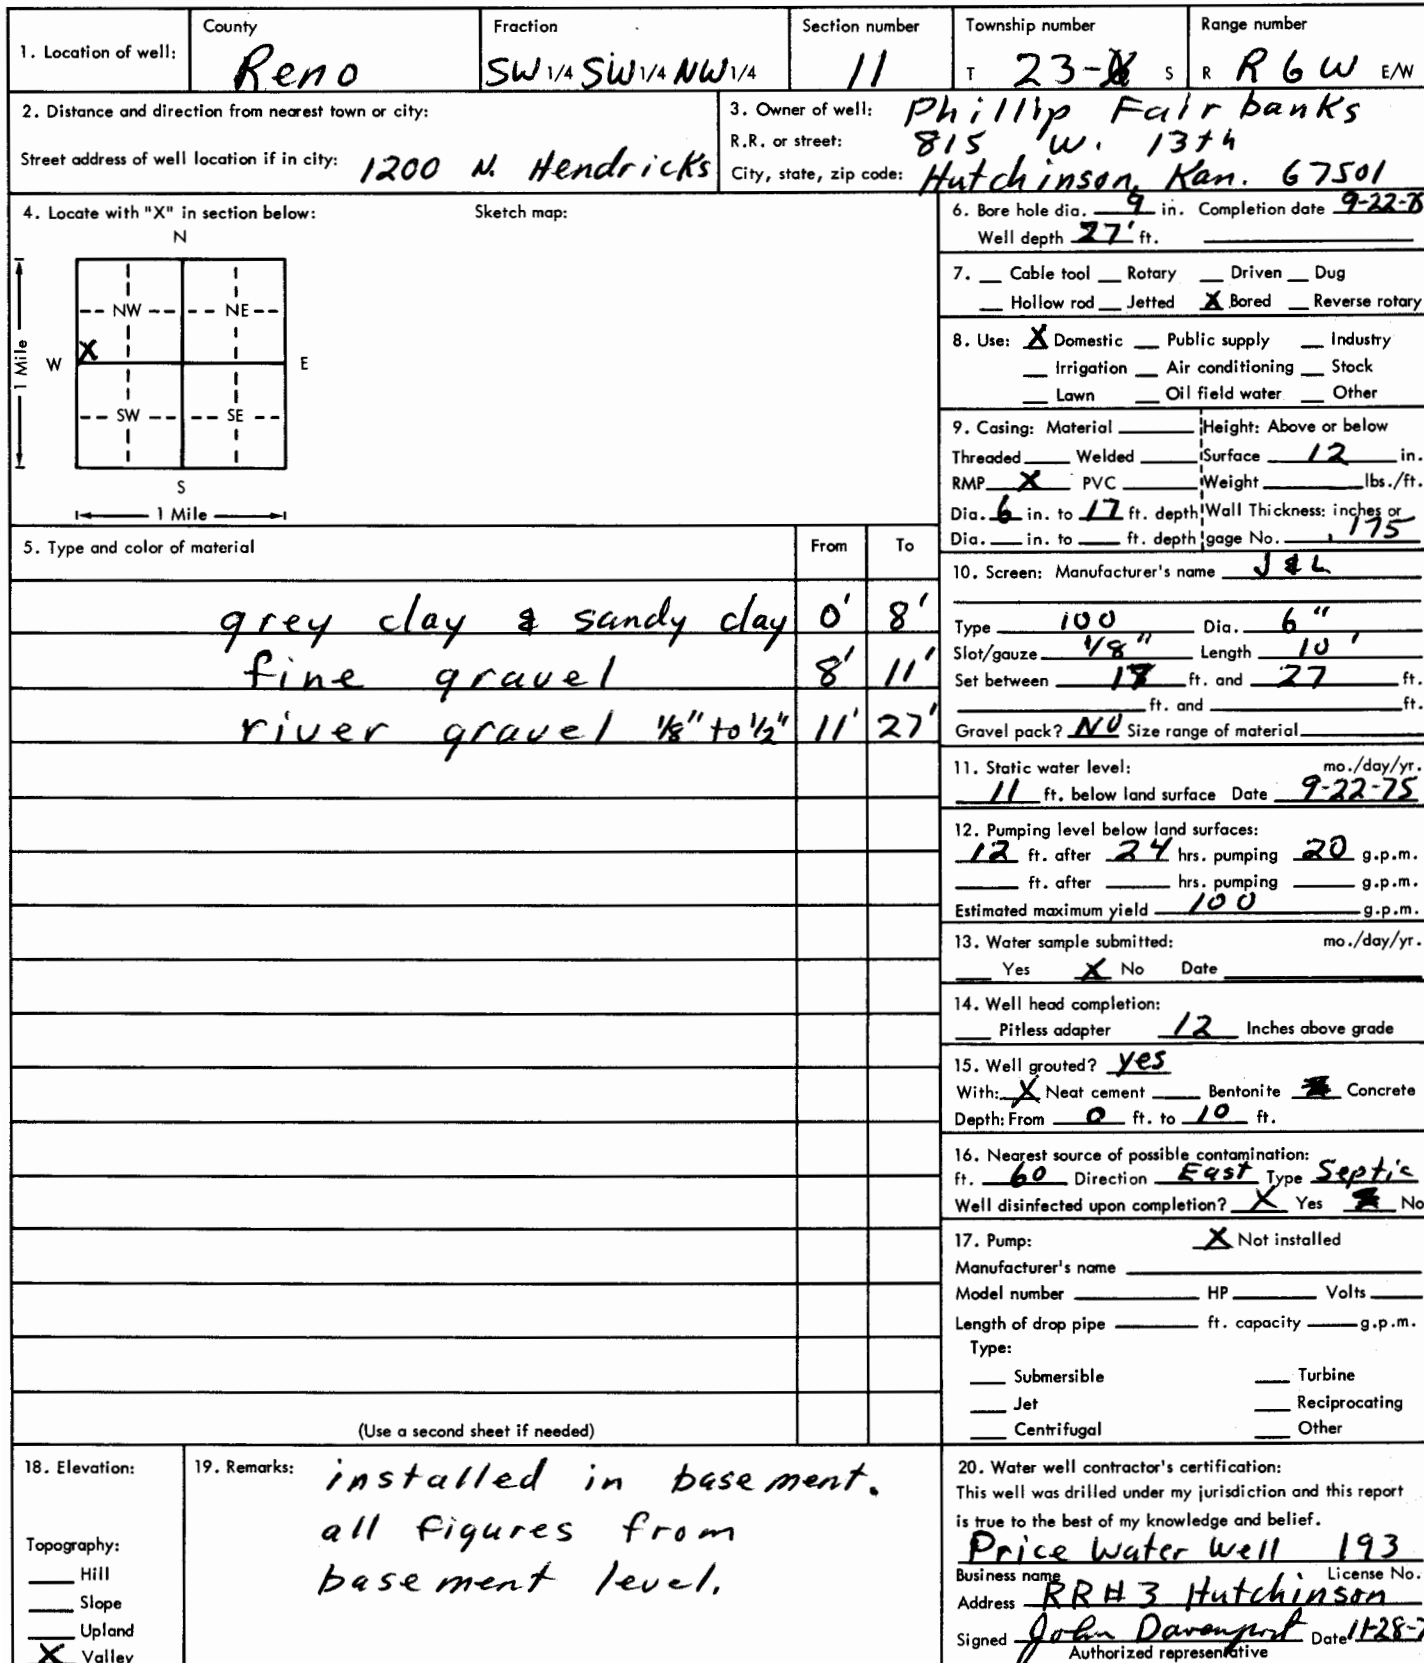 1. Location of well: County Reno Fraction SW 1/4 SW 1/4 NW 1/4 Section number 11 Township number T 23- S Range number R R 6 W E/W
2. Distance and direction from nearest town or city:
Street address of well location if in city: 1200 N. Hendricks
3. Owner of well: Phillip Fairbanks
R.R. or street: 815 W. 13th
City, state, zip code: Hutchinson, Kan. 67501
4. Locate with "X" in section below: Sketch map:
N
NW NE
W X E
SW SE
S
1 Mile
1 Mile
5. Type and color of material From To
grey clay & sandy clay 0' 8'
fine gravel 8' 11'
river gravel 1/8" to 1/2" 11' 27'
(Use a second sheet if needed)
6. Bore hole dia. 9 in. Completion date 9-22-
Well depth 27' ft.
7. __ Cable tool __ Rotary __ Driven __ Dug
__ Hollow rod __ Jetted X Bored __ Reverse rotary
8. Use: X Domestic __ Public supply __ Industry
__ Irrigation __ Air conditioning __ Stock
__ Lawn __ Oil field water __ Other
9. Casing: Material ____ Height: Above or below
Threaded ____ Welded ____ Surface 12 in.
RMP X PVC ____ Weight ____ lbs./ft.
Dia. 6 in. to 17 ft. depth Wall Thickness: inches or
Dia. __ in. to __ ft. depth gage No. .175
10. Screen: Manufacturer's name J & L
Type 100 Dia. 6"
Slot/gauze 1/8" Length 10'
Set between 17 ft. and 27 ft.
____ ft. and ____ ft.
Gravel pack? NO Size range of material ____
11. Static water level: mo./day/yr.
11 ft. below land surface Date 9-22-75
12. Pumping level below land surfaces:
12 ft. after 24 hrs. pumping 20 g.p.m.
____ ft. after ____ hrs. pumping ____ g.p.m.
Estimated maximum yield 100 g.p.m.
13. Water sample submitted: mo./day/yr.
__ Yes X No Date ____
14. Well head completion:
__ Pitless adapter 12 Inches above grade
15. Well grouted? yes
With: X Neat cement ____ Bentonite ____ Concrete
Depth: From 0 ft. to 10 ft.
16. Nearest source of possible contamination:
ft. 60 Direction East Type Septic
Well disinfected upon completion? X Yes ____ No
17. Pump: X Not installed
Manufacturer's name ____
Model number ____ HP ____ Volts ____
Length of drop pipe ____ ft. capacity ____ g.p.m.
Type:
__ Submersible __ Turbine
__ Jet __ Reciprocating
__ Centrifugal __ Other
18. Elevation:
Topography:
__ Hill
__ Slope
__ Upland
X Valley
19. Remarks: installed in basement.
all figures from
basement level.
20. Water well contractor's certification:
This well was drilled under my jurisdiction and this report
is true to the best of my knowledge and belief.
Price Water Well 193
Business name License No.
Address RR#3 Hutchinson
Signed John Davenport Date 11-28-7
Authorized representative